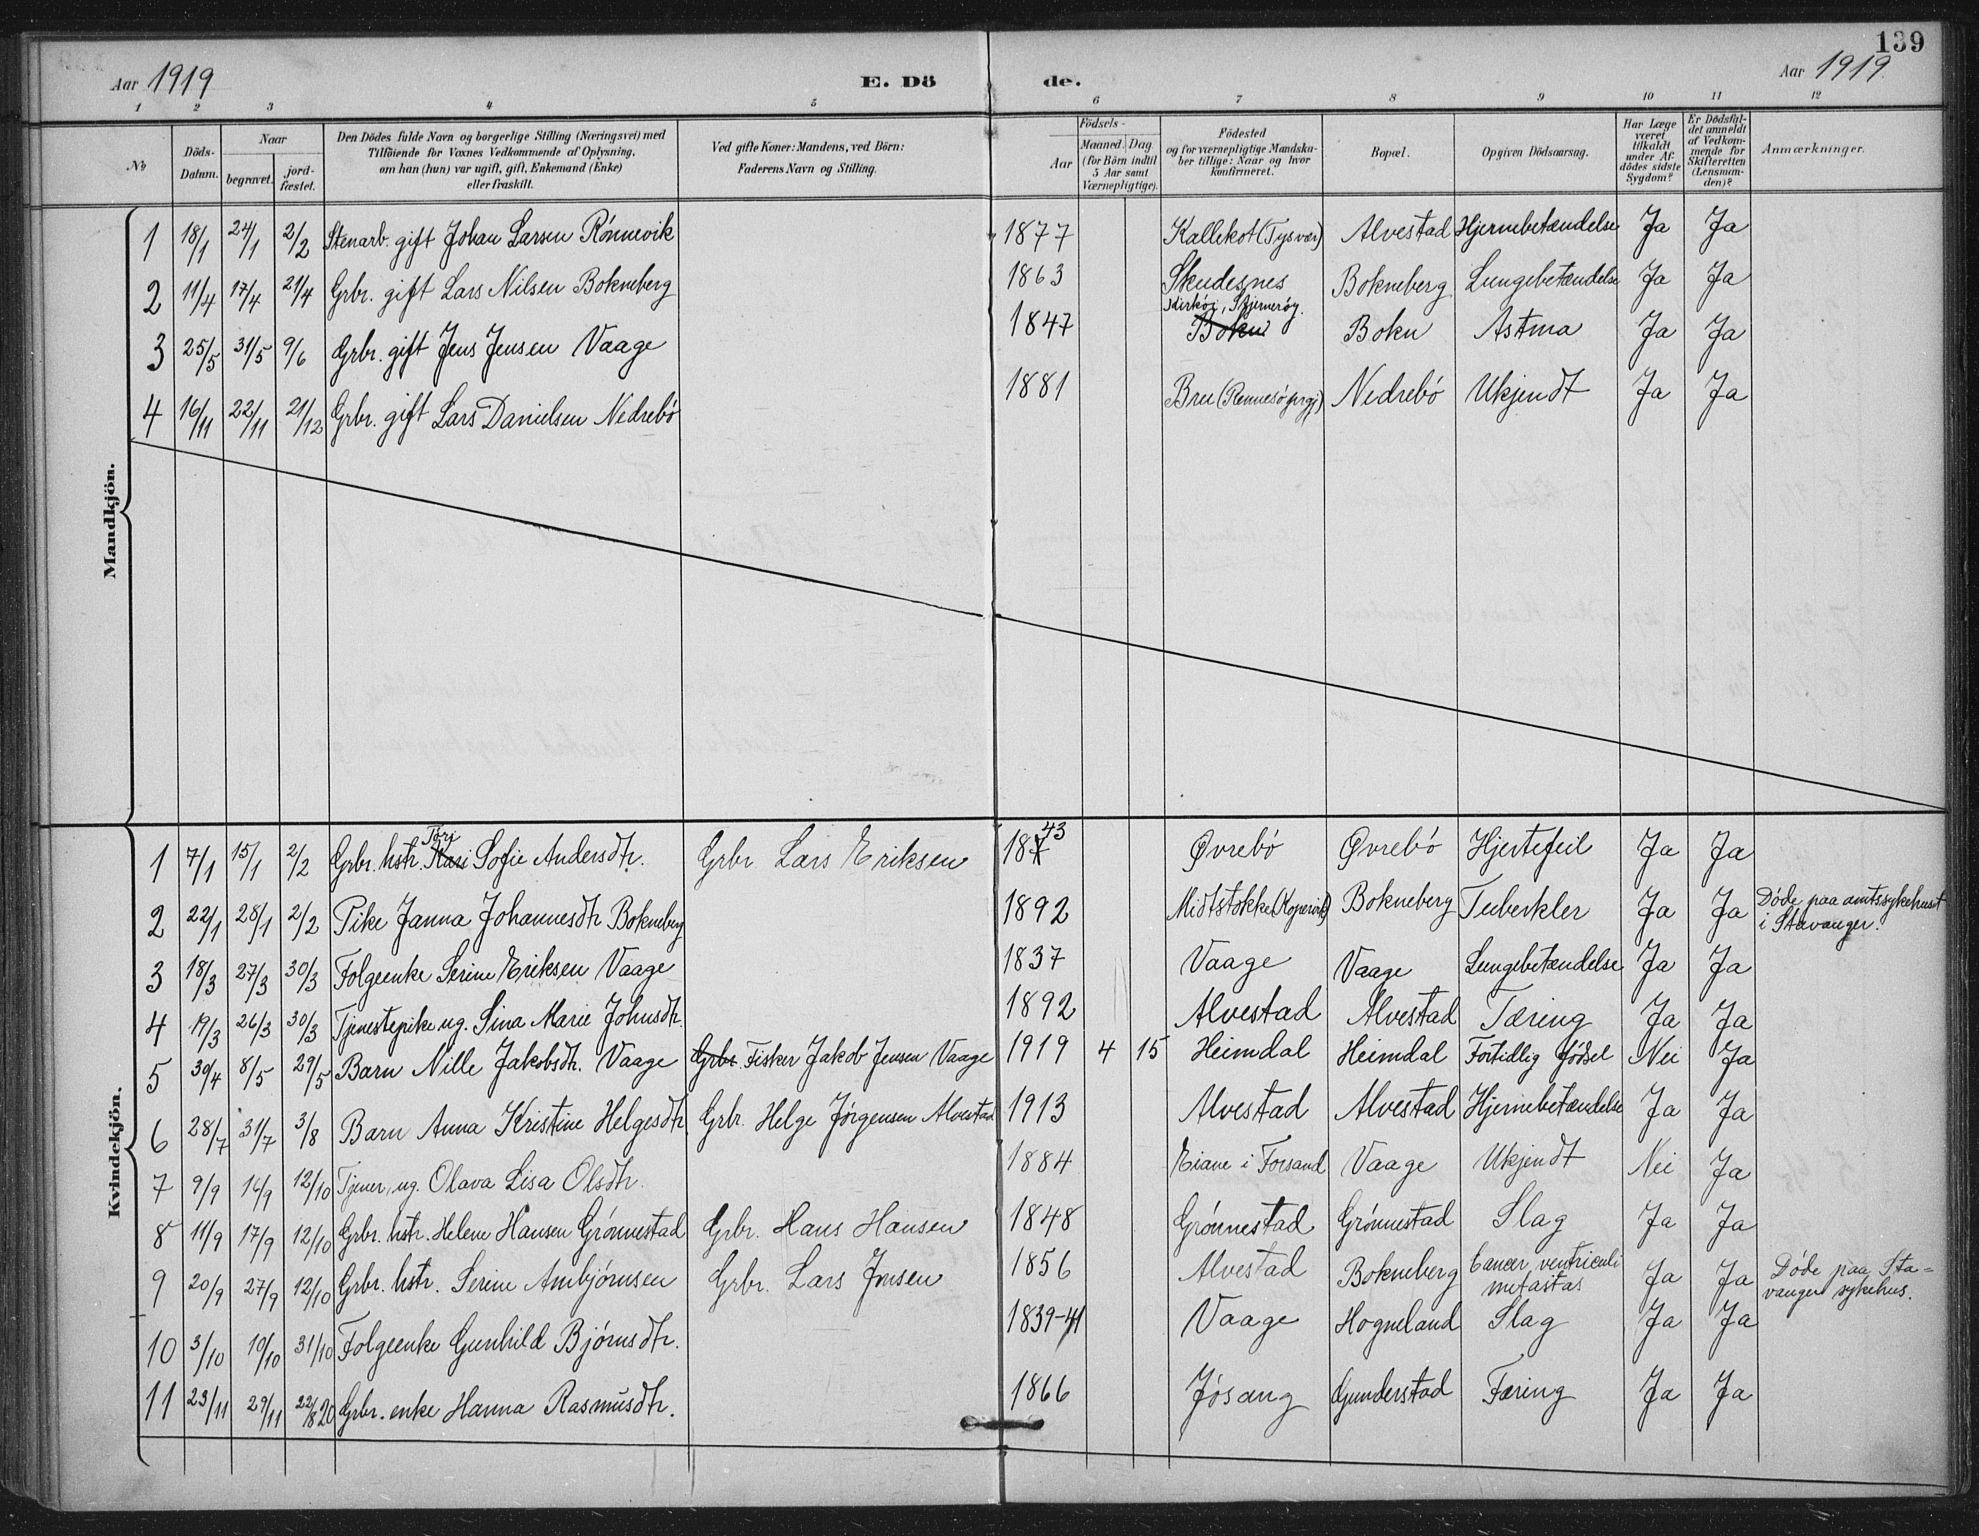 139
Aar 1919 E. Dö de. Aar 1919
1 2 3 4 5 6 7 8 9 10 11 12
No
Döds-Datum.
Naar
begravet.
jord-fæstet.
Den Dödes fulde Navn og borgerlige Stilling (Næringsvei) med
Tilföiende for Voxnes Vedkommende af Oplysning,
om han (hun) var ugift, gift, Enkemand (Enke)
eller fraskilt.
Ved gifte Koner: Mandens, ved Börn:
Faderens Navn og Stilling.
Födsels-
Aar
Maaned. Dag
(for Börn indtil
5 Aar samt
Værnepligtige).
Födested
og for værnepligtige Mandska-
ber tillige: Naar og hvor
konfirmeret.
Bopæl.
Opgiven Dödsaarsag.
Har Læge
været
tilkaldt
under Af-
dödes sidste
Sygdom?
Er Dödsfal-
det anmeldt
af Vedkom-
mende for
Skifteretten
(Lensman-
den)?
Anmærkninger.
Mandkjön.
1 18/1 24/1 2/2 Stenarb. gift Johan Larsen Rónnevik 1877 Kallekot (Tysvær) Alvestad Hjernebetændelse Ja Ja
2 11/4 17/4 21/4 Grbr. gift Lars Nilsen Bokneberg 1863 Skudesnes Bokneberg Lungebetændelse Ja Ja
3 25/5 31/5 9/6 Grbr. gift Jens Jensen Vaage 1847 Kirköi, Stjernerøy. Bokn Bokn Astma Ja Ja
4 16/11 22/11 21/12 Grbr. gift Lars Danielsen Nedrebó 1881 Bru (Rennesó prgj) Nedrebó Ukjendt Ja Ja
Kvindekjön.
1 7/1 15/1 2/2 Grbr. hstr. Kari Torj Sofie Andersdtr. Grbr Lars Eriksen 1843 Øvrebó Øvrebó Hjertefeil Ja Ja
2 22/1 28/1 2/2 Pike Janna Johannesdtr Bokneberg 1892 Midtstokke (Kopervik) Bokneberg Tuberkler Ja Ja Dóde paa amtssykehuset
i Stavanger.
3 18/3 27/3 30/3 Folgeenke Serine Eriksen Vaage 1837 Vaage Vaage Lungebetændelse Ja Ja
4 19/3 26/3 30/3 Tjenestepike ug. Sina Marie Johnsdtr. 1892 Alvestad Alvestad Tæring Ja Ja
5 30/4 8/5 29/5 Barn Nille Jakobsdtr. Vaage Grbr. Fisker Jakob Jensen Vaage 1919 4 15 Heimdal Heimdal Fortidlig fódsel Nei Ja
6 28/7 31/7 3/8 Barn Anna Kristine Helgesdtr. Grbr. Helge Jórgensen Alvestad 1913 Alvestad Alvestad Hjernebetændelse Ja Ja
7 9/9 14/9 12/10 Tjener, ug. Olava Lisa Olsdtr. 1884 Eiane i Forsand Vaage Ukjendt Nei Ja
8 11/9 17/9 12/10 Grbr. hstr. Helene Hansen Grónnestad Grbr. Hans Hansen 1848 Grónnestad Grónnestad Slag Ja Ja
9 20/9 27/9 12/10 Grbr. hstr. Serine Ambjórnsen Grbr. Lars Jensen 1856 Alvestad Bokneberg Cancer ventriculi
metastas Ja Ja Dóde paa Sta-
vanger sykehus.
10 3/10 10/10 31/10 Folgeenke Gunhild Bjórnsdtr. 1839-41 Vaage Hogneland Slag Ja Ja
11 23/11 29/11 22/8 20 Grbr. enke Hanna Rasmusdtr. 1866 Jósang Gunderstad Tæring Ja Ja